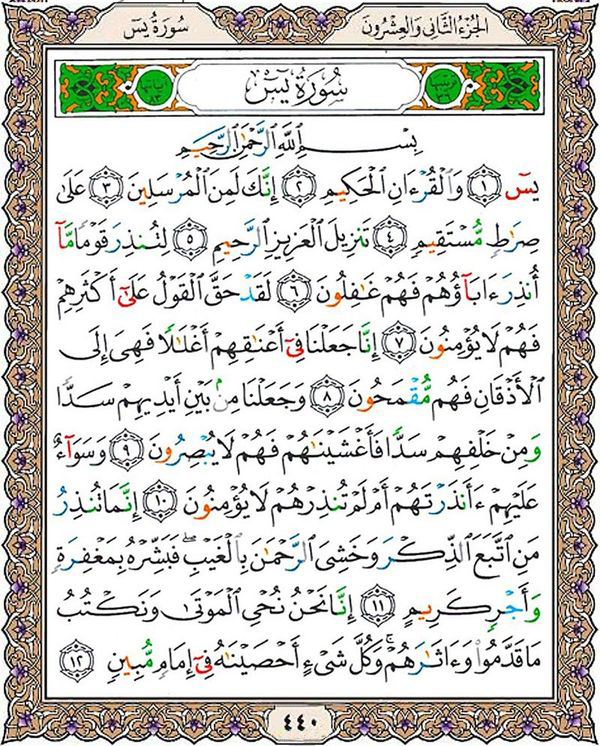 سُورَةُ يسٓ الجُزْءُ الثَّانِي وَالعِشْرُونَ
سُورَةُ يسٓ
بِسْمِ ٱللَّهِ ٱلرَّحْمَٰنِ ٱلرَّحِيمِ
يسٓ ١ وَٱلْقُرْءَانِ ٱلْحَكِيمِ ٢ إِنَّكَ لَمِنَ ٱلْمُرْسَلِينَ ٣ عَلَىٰ
صِرَٰطٍ مُّسْتَقِيمٍ ٤ تَنزِيلَ ٱلْعَزِيزِ ٱلرَّحِيمِ ٥ لِتُنذِرَ قَوْمًا مَّآ
أُنذِرَ ءَابَآؤُهُمْ فَهُمْ غَٰفِلُونَ ٦ لَقَدْ حَقَّ ٱلْقَوْلُ عَلَىٰٓ أَكْثَرِهِمْ
فَهُمْ لَا يُؤْمِنُونَ ٧ إِنَّا جَعَلْنَا فِىٓ أَعْنَٰقِهِمْ أَغْلَٰلًا فَهِىَ إِلَى
ٱلْأَذْقَانِ فَهُم مُّقْمَحُونَ ٨ وَجَعَلْنَا مِنۢ بَيْنِ أَيْدِيهِمْ سَدًّا
وَمِنْ خَلْفِهِمْ سَدًّا فَأَغْشَيْنَٰهُمْ فَهُمْ لَا يُبْصِرُونَ ٩ وَسَوَآءٌ
عَلَيْهِمْ ءَأَنذَرْتَهُمْ أَمْ لَمْ تُنذِرْهُمْ لَا يُؤْمِنُونَ ١٠ إِنَّمَا تُنذِرُ
مَنِ ٱتَّبَعَ ٱلذِّكْرَ وَخَشِىَ ٱلرَّحْمَٰنَ بِٱلْغَيْبِ ۖ فَبَشِّرْهُ بِمَغْفِرَةٍ
وَأَجْرٍ كَرِيمٍ ١١ إِنَّا نَحْنُ نُحْىِ ٱلْمَوْتَىٰ وَنَكْتُبُ
مَا قَدَّمُوا۟ وَءَاثَٰرَهُمْ ۚ وَكُلَّ شَىْءٍ أَحْصَيْنَٰهُ فِىٓ إِمَامٍ مُّبِينٍ ١٢
٤٤٠